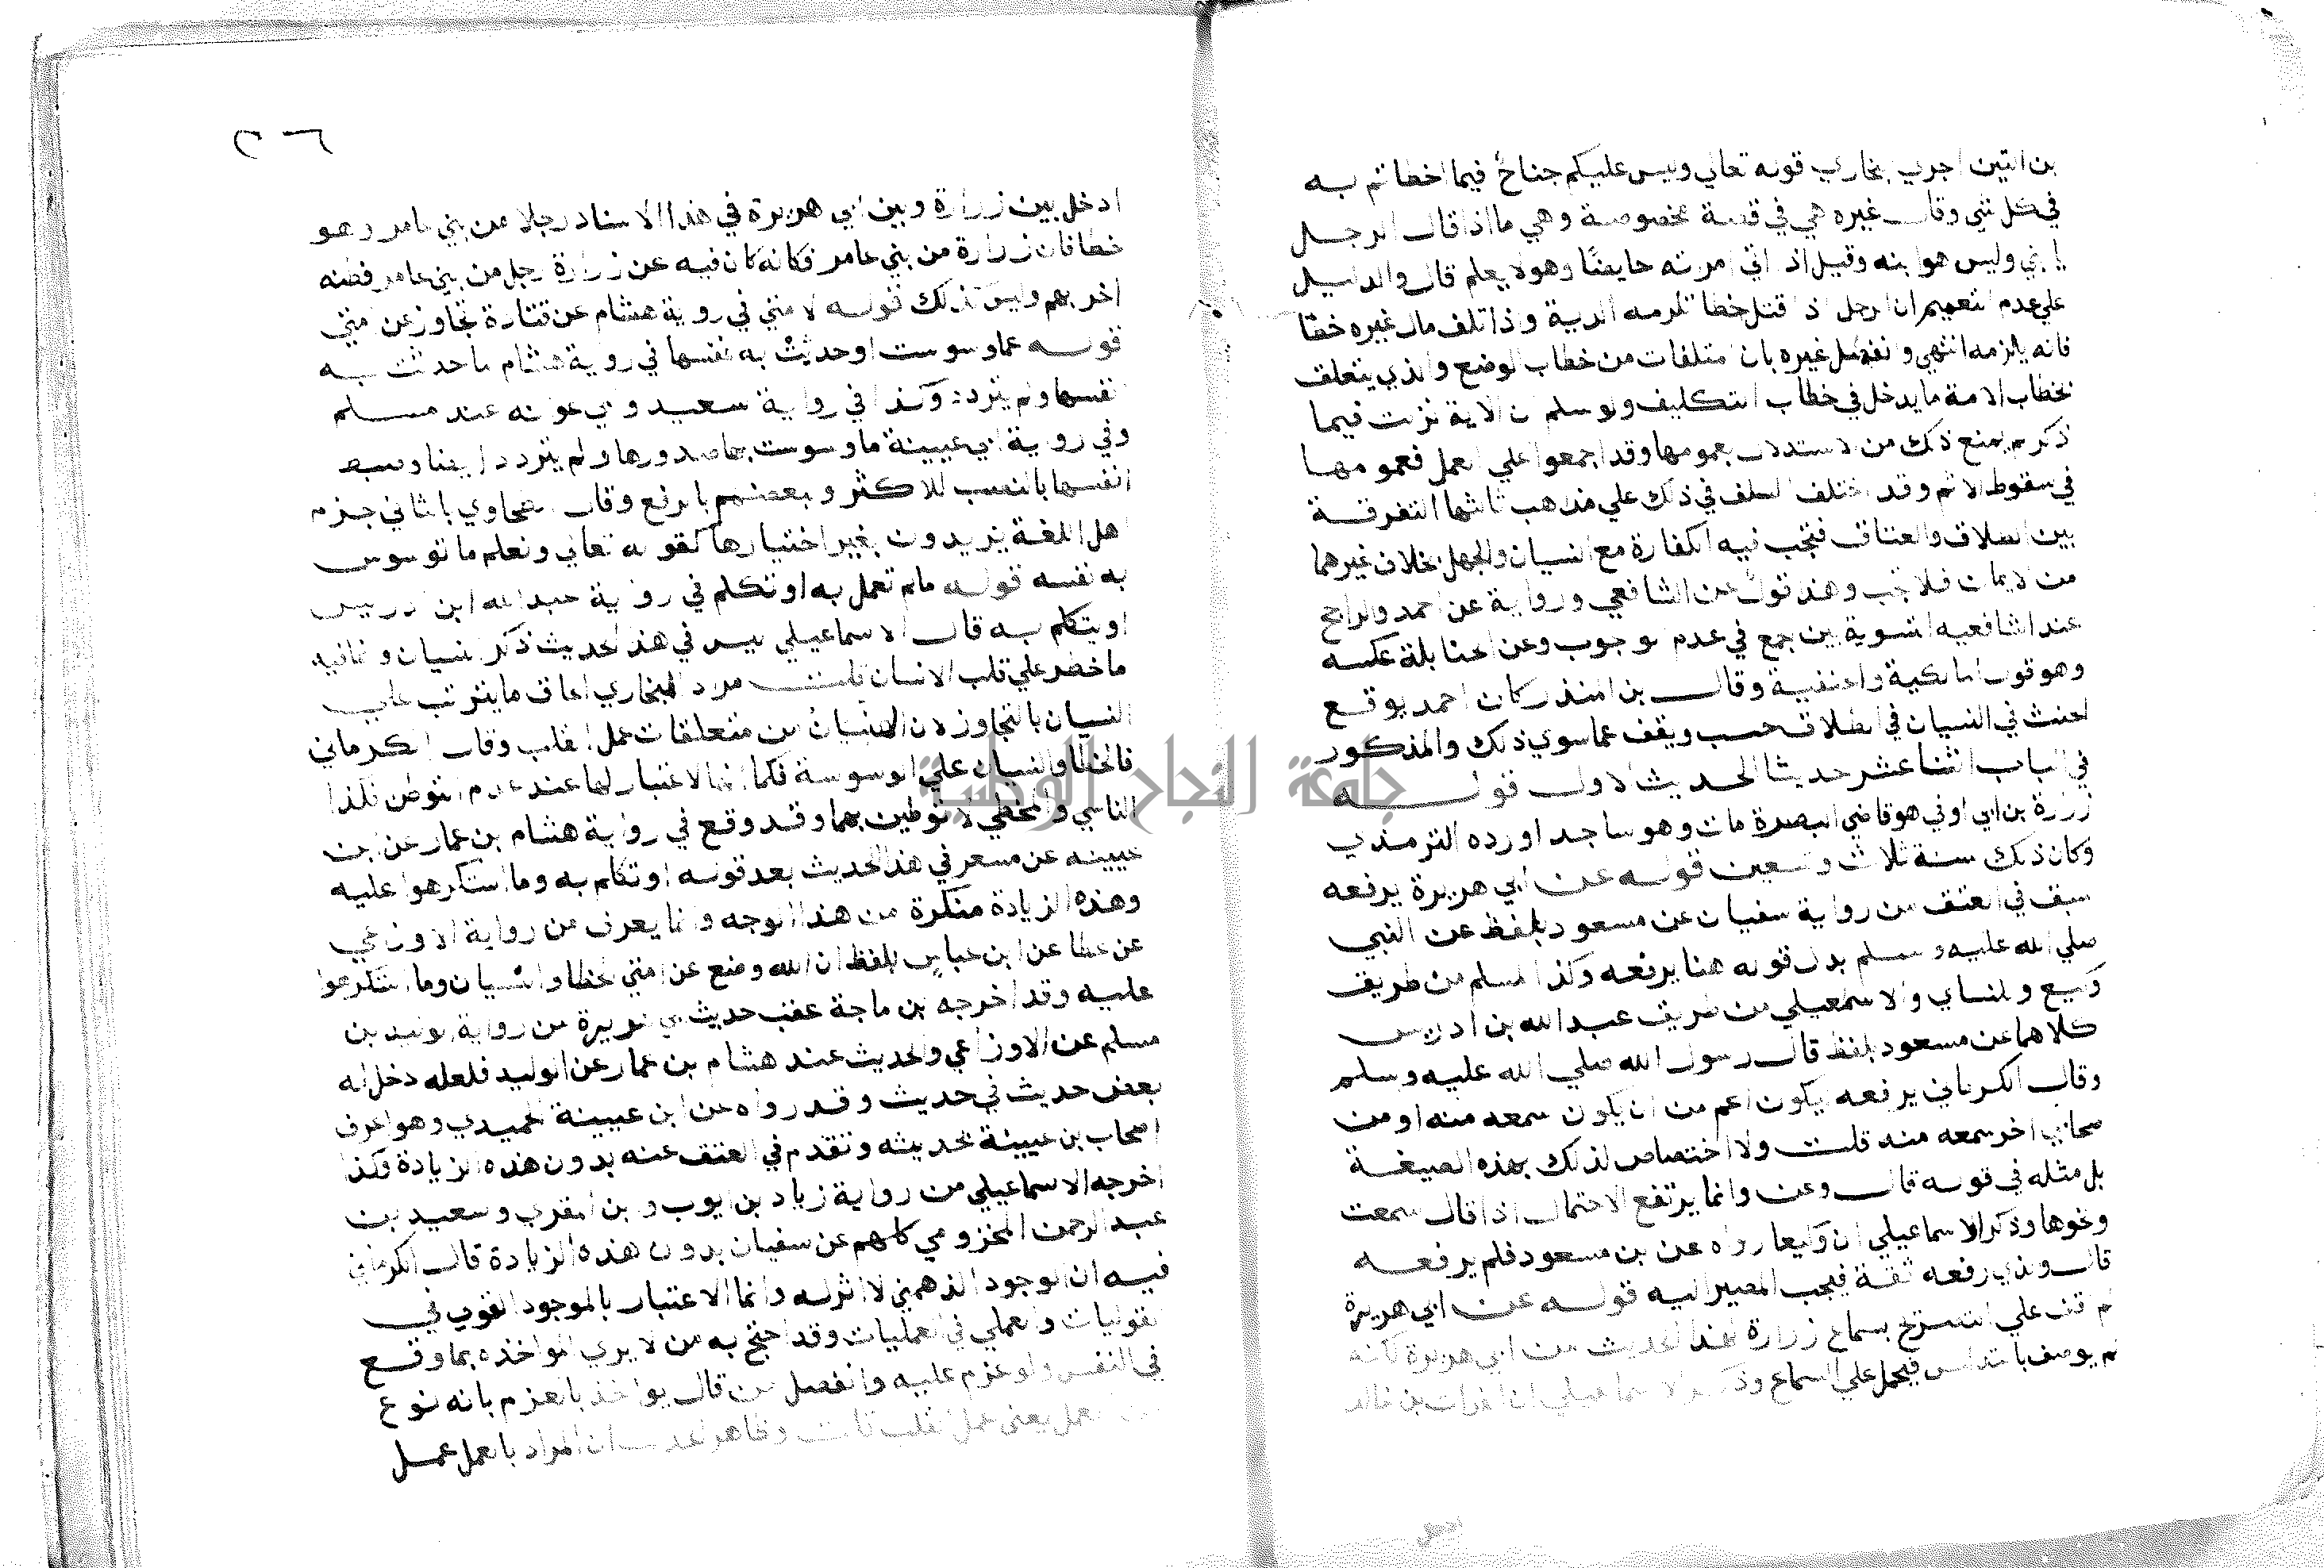 بن التين اجري البخاري قوله تعالي وليس عليكم جناح فيما اخطاتم به
في كل شي وقال غيره هي في قصة مخصوصة وهي ما اذا قال الرجل
يا بني وليس هو ابنه وقيل اذا اتي امرته حايضا وهو لا يعلم قال والدليل
علي عدم التعميم ان الرجل اذا قتل خطا تلزمه الدية واذا تلف مال غيره خطا
فانه يلزمه انتهي وانفصل غيره بان المتلفات من خطاب الوضع والذي يتعلق
بخطاب الامة ما يدخل في خطاب التكليف ولو سلم ان الاية نزلت فيما
ذكر لم يمنع ذلك من الاستدلال بعمومها وقد اجمعوا علي العمل فعمومها
في سقوط الاثم وقد اختلف السلف في ذلك علي مذاهب ثالثها التفرقة
بين الطلاق والعتاق فتجب فيه الكفارة مع النسيان والجهل بخلاف غيرهما
من الايمان فلا تجب وهذا قول عن الشافعي ورواية عن احمد والراجح
عند الشافعيه التسوية بين الجمع في عدم الوجوب وعن الحنابلة عكسه
وهو قول المالكية والحنفية وقال بن المنذر كان احمد يوقع
الحنث في النسيان في الطلاق حسب ويقف عما سوي ذلك والمذكور
في الباب اثنا عشر حديثا الحديث الاول قوله
زرارة بن ابي اوفي هو قاضي البصرة مات وهو ساجد اورده الترمذي
وكان ذلك سنة ثلاث وتسعين قوله عن ابي هريرة يرفعه
سبق في العتق من رواية سفيان عن مسعود بلفظ عن النبي
صلي الله عليه وسلم بدل قوله هنا يرفعه وكذا المسلم من طريق
وكيع وللنساي والاسمعيلي من طريق عبد الله بن ادريس
كلاهما عن مسعود بلفظ قال رسول الله صلي الله عليه وسلم
وقال الكرماني يرفعه يكون اعم من ان يكون سمعه منه او من
صحابي اخر سمعه منه قلت ولا اختصاص لذلك بهذه الصيغة
بل مثله في قوله قال وعن وانما يرتفع الاحتمال اذا قال سمعت
ونحوها وذكر الاسماعيلي ان وكيعا رواه عن بن مسعود فلم يرفعه
قال والذي رفعه ثقة فيجب المصير اليه قوله عن ابي هريرة
لم اقف علي التصريح بسماع زرارة لهذا الحديث من ابي هريرة لكنه
لم يوصف بالتدليس فيحمل علي السماع وذكر الاسماعيلي ان الفرات بن خالد
ادخل
٢٦
ادخل بين زرارة وبين ابي هريرة في هذا الاسناد رجلا من بني عامر وهو
خطا فان زرارة من بني عامر فكانه كان فيه عن زرارة رجل من بني عامر فظنه
اخر بهم وليس كذلك قوله لامتي في رواية هشام عن قتادة تجاوز عن امتي
قوله عما وسوست او حديث به نفسها في رواية هشام ما حدثت به
نفسها ولم يتردد وكذا في رواية سعيد وابي عوانه عند مسلم
وفي رواية ابن عيينة ما وسوست بها صدورها ولم يتردد ايضا وضبط
انفسها بالنصب للاكثر وبعضهم بالرفع وقال الطحاوي بالثاني جزم
اهل اللغة يريدون بغير اختيارها كقوله تعالي ونعلم ما توسوس
به نفسه قوله ما لم تعمل به او تكلم في رواية عبد الله ابن ادريس
او يتكلم به قال الاسماعيلي ليس في هذا الحديث ذكر النسيان وانما فيه
ما خطر علي قلب الانسان قلت مراد البخاري الحاق ما يترتب علي
النسيان بالتجاوز لان النسيان من متعلقات عمل القلب وقال الكرماني
فالخطا والنسيان علي الوسوسة فكما انها لا اعتبار لها عند عدم التوطن فلذا
الناسي والمخطي لا توطين بهما وقد وقع في رواية هشام بن عمار عن بن
عيينه عن مسعر في هذا الحديث بعد قوله او تكلم به وما استكرهوا عليه
وهذه الزيادة منكرة من هذا الوجه وانما يعرف من رواية الاوزاعي
عن عطا عن ابن عباس بلفظ ان الله وضع عن امتي الخطا والنسيان وما استكرهوا
عليه وقد اخرجه بن ماجة عقب حديث ابي هريرة من رواية الوليد بن
مسلم عن الاوزاعي والحديث عند هشام بن عمار عن الوليد فلعله دخل له
بعض حديث في حديث وقد رواه عن ابن عيينة الحميدي وهو اعرف
اصحاب بن عيينة بحديثه وتقدم في العتق عنه بدون هذه الزيادة وكذا
اخرجه الاسماعيلي من رواية زياد بن ايوب وابن المقري وسعيد بن
عبد الرحمن المخزومي كلهم عن سفيان بدون هذه الزيادة قال الكرماني
فيه ان الوجود الذهني لا اثر له وانما الاعتبار بالموجود القولي في
القوليات والعملي في العمليات وقد احتج به من لا يري المواخذه بما وقع
في النفس ولو عزم عليه وانفصل من قال يواخذ بالعزم بانه نوع
من العمل يعني عمل القلب قلت وظاهر الحديث ان المراد بالعمل عمل
جامعة النجاح الوطنية